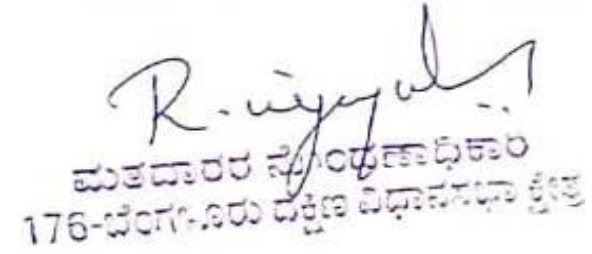 ಮತದಾರರ ನೋಂದಣಾಧಿಕಾರಿ
176-ಬೆಂಗಳೂರು ದಕ್ಷಿಣ ವಿಧಾನಸಭಾ ಕ್ಷೇತ್ರ